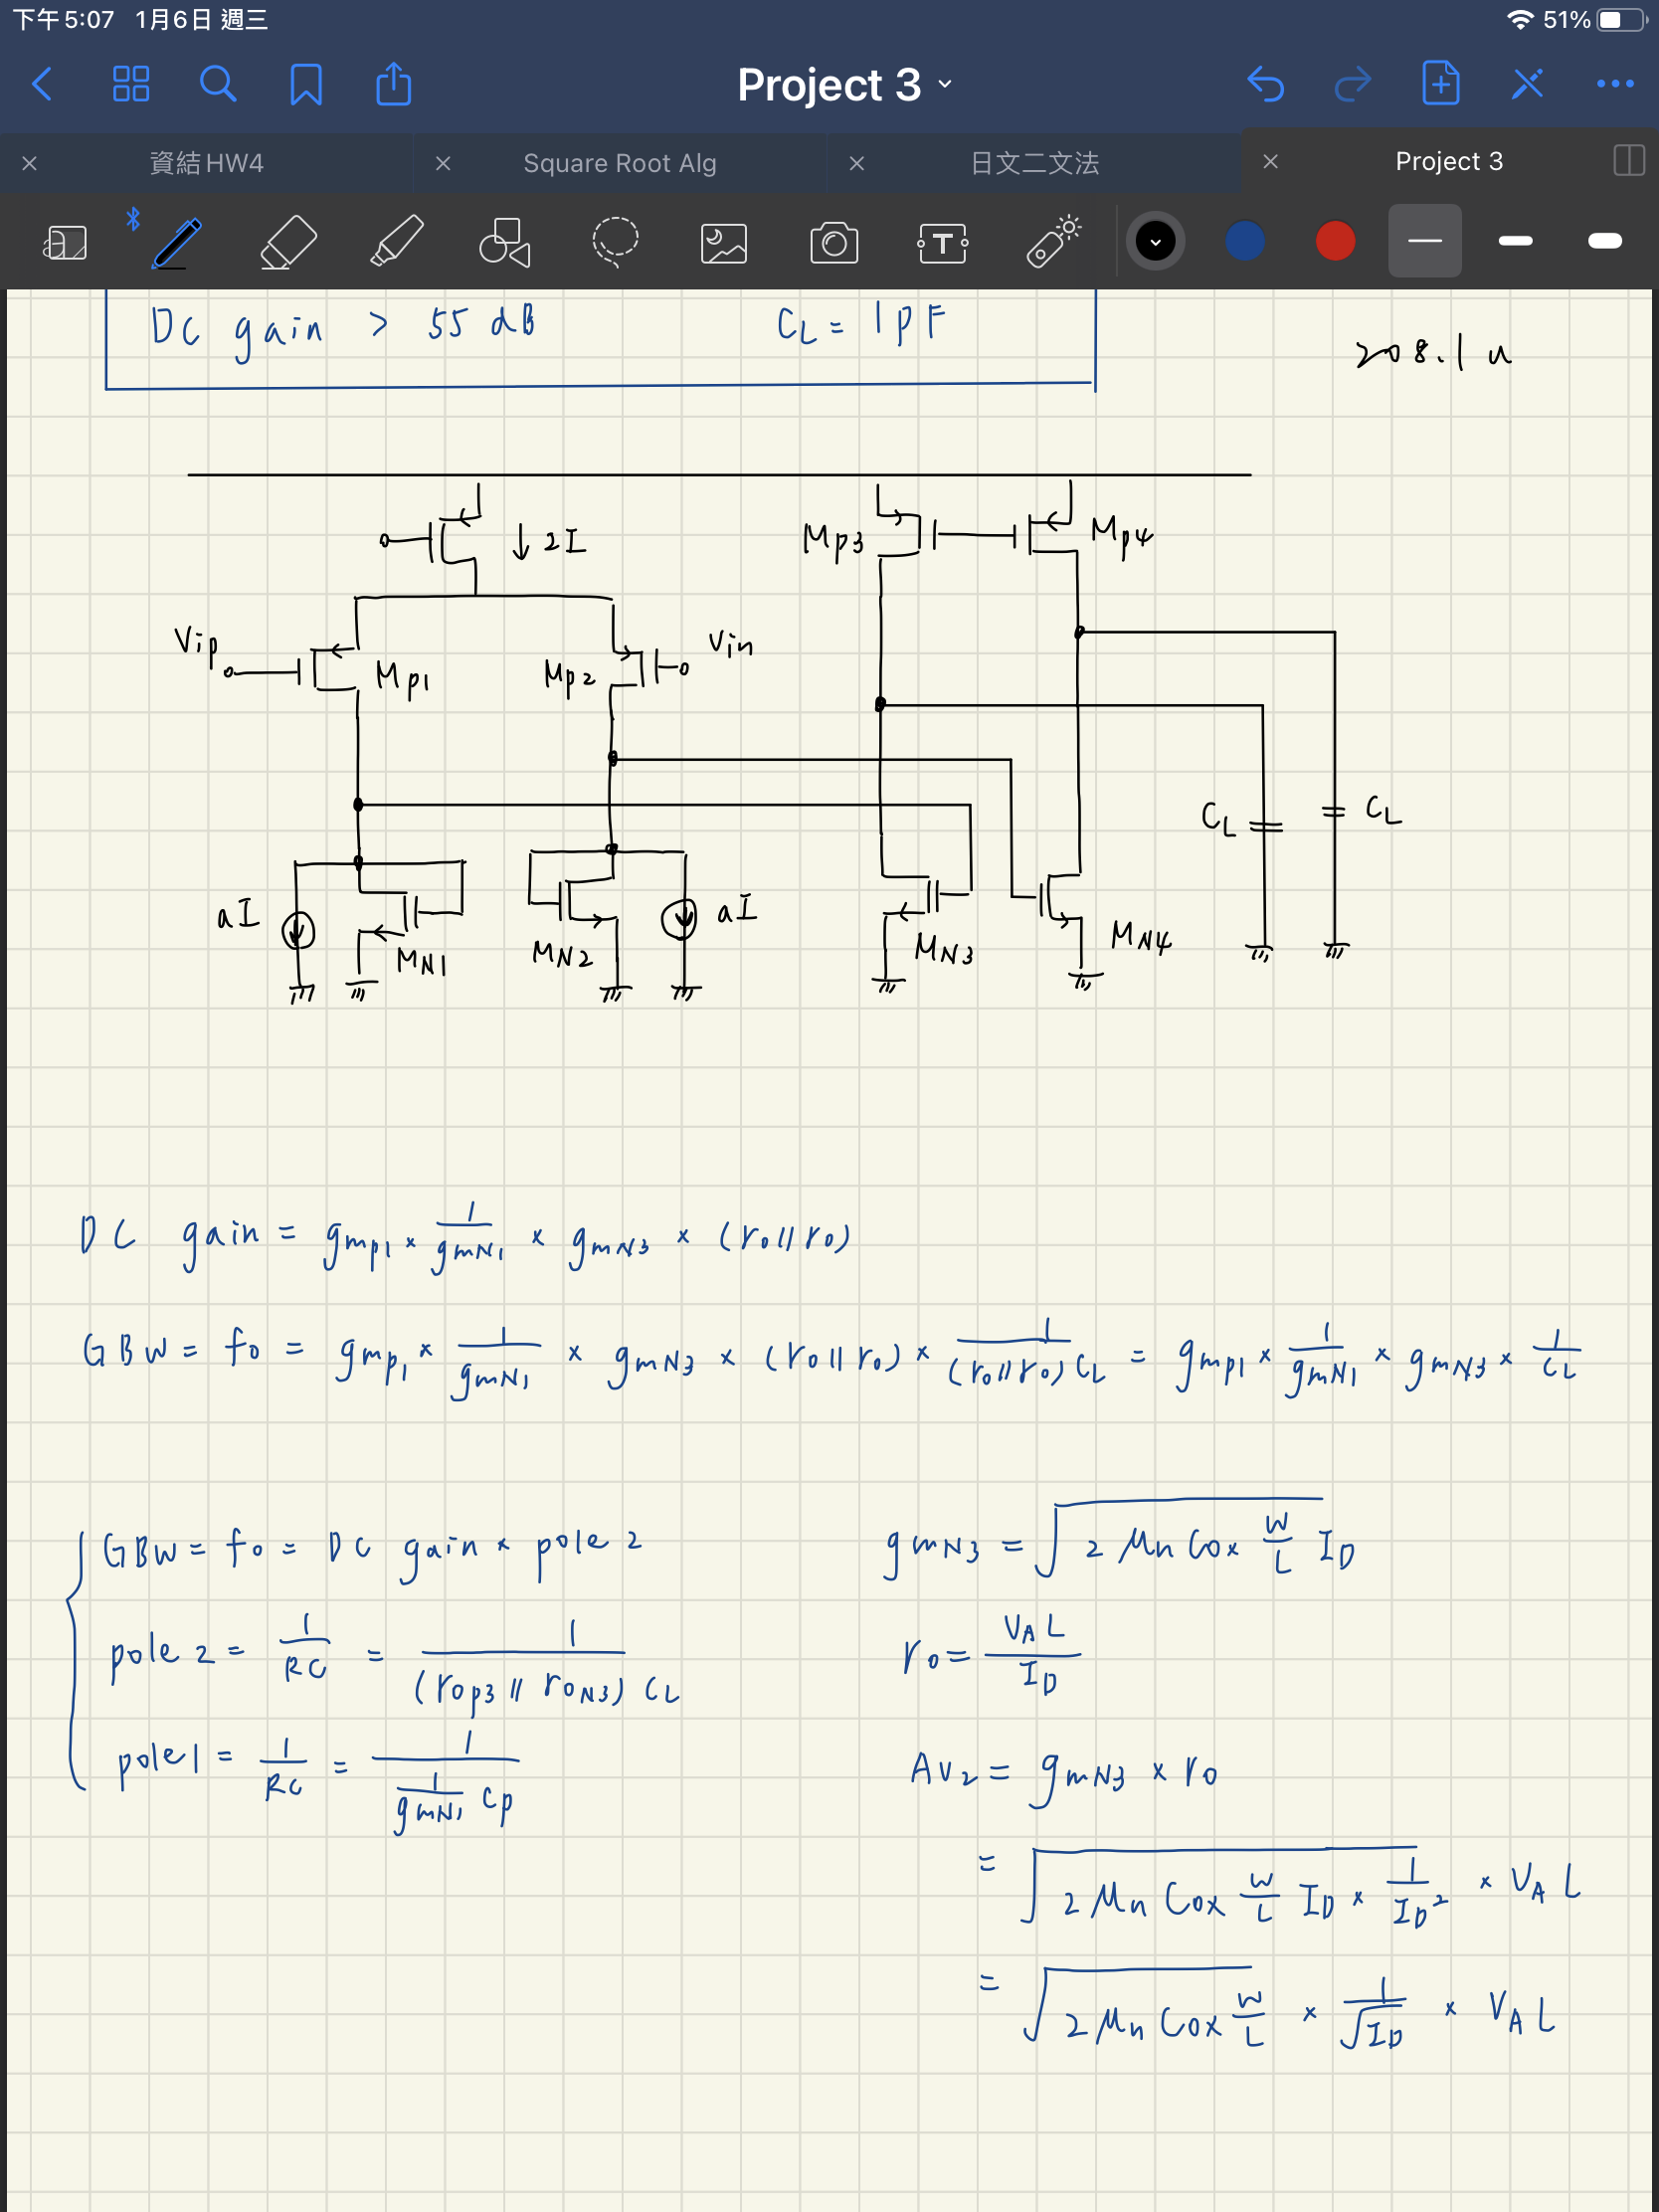 下午5:07 1月6日 週三 51%
Project 3
資結HW4 Square Root Alg 日文二文法 Project 3
DC gain > 55 dB CL = 1pF
208.1 u
2I
Mp3 Mp4
Vip Mp1 Mp2 Vin
CL CL
aI MN1 MN2 aI MN3 MN4
DC gain = gmp1 × 1/gmN1 × gmN3 × (ro∥ro)
GBW = fo = gmp1 × 1/gmN1 × gmN3 × (ro∥ro) × 1/((ro∥ro)CL) = gmp1 × 1/gmN1 × gmN3 × 1/CL
GBW = fo = DC gain × pole 2
pole 2 = 1/RC = 1/((rop3 ∥ roN3) CL)
pole1 = 1/RC = 1/(1/gmN1 Cp)
gmN3 = √(2 μn Cox W/L ID)
ro = VA L/ID
Av2 = gmN3 × ro
= √(2 μn Cox W/L ID × 1/ID²) × VA L
= √(2 μn Cox W/L) × 1/√ID × VA L